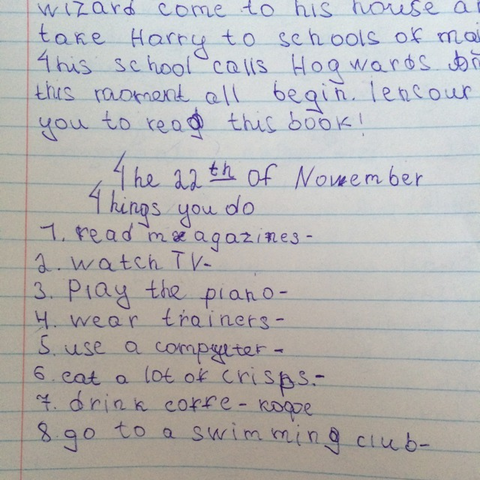 wizard come to his house a
take Harry to schools of ma
This school calls Hogwards. On
this moment all begin. I encour
you to read this book!
The 22th Of November
Things you do
1. read magazines-
2. watch TV-
3. Play the piano-
4. wear trainers-
5. use a compyter-
6. eat a lot of crisps.-
7. drink coffe - кофе
8. go to a swimming club-